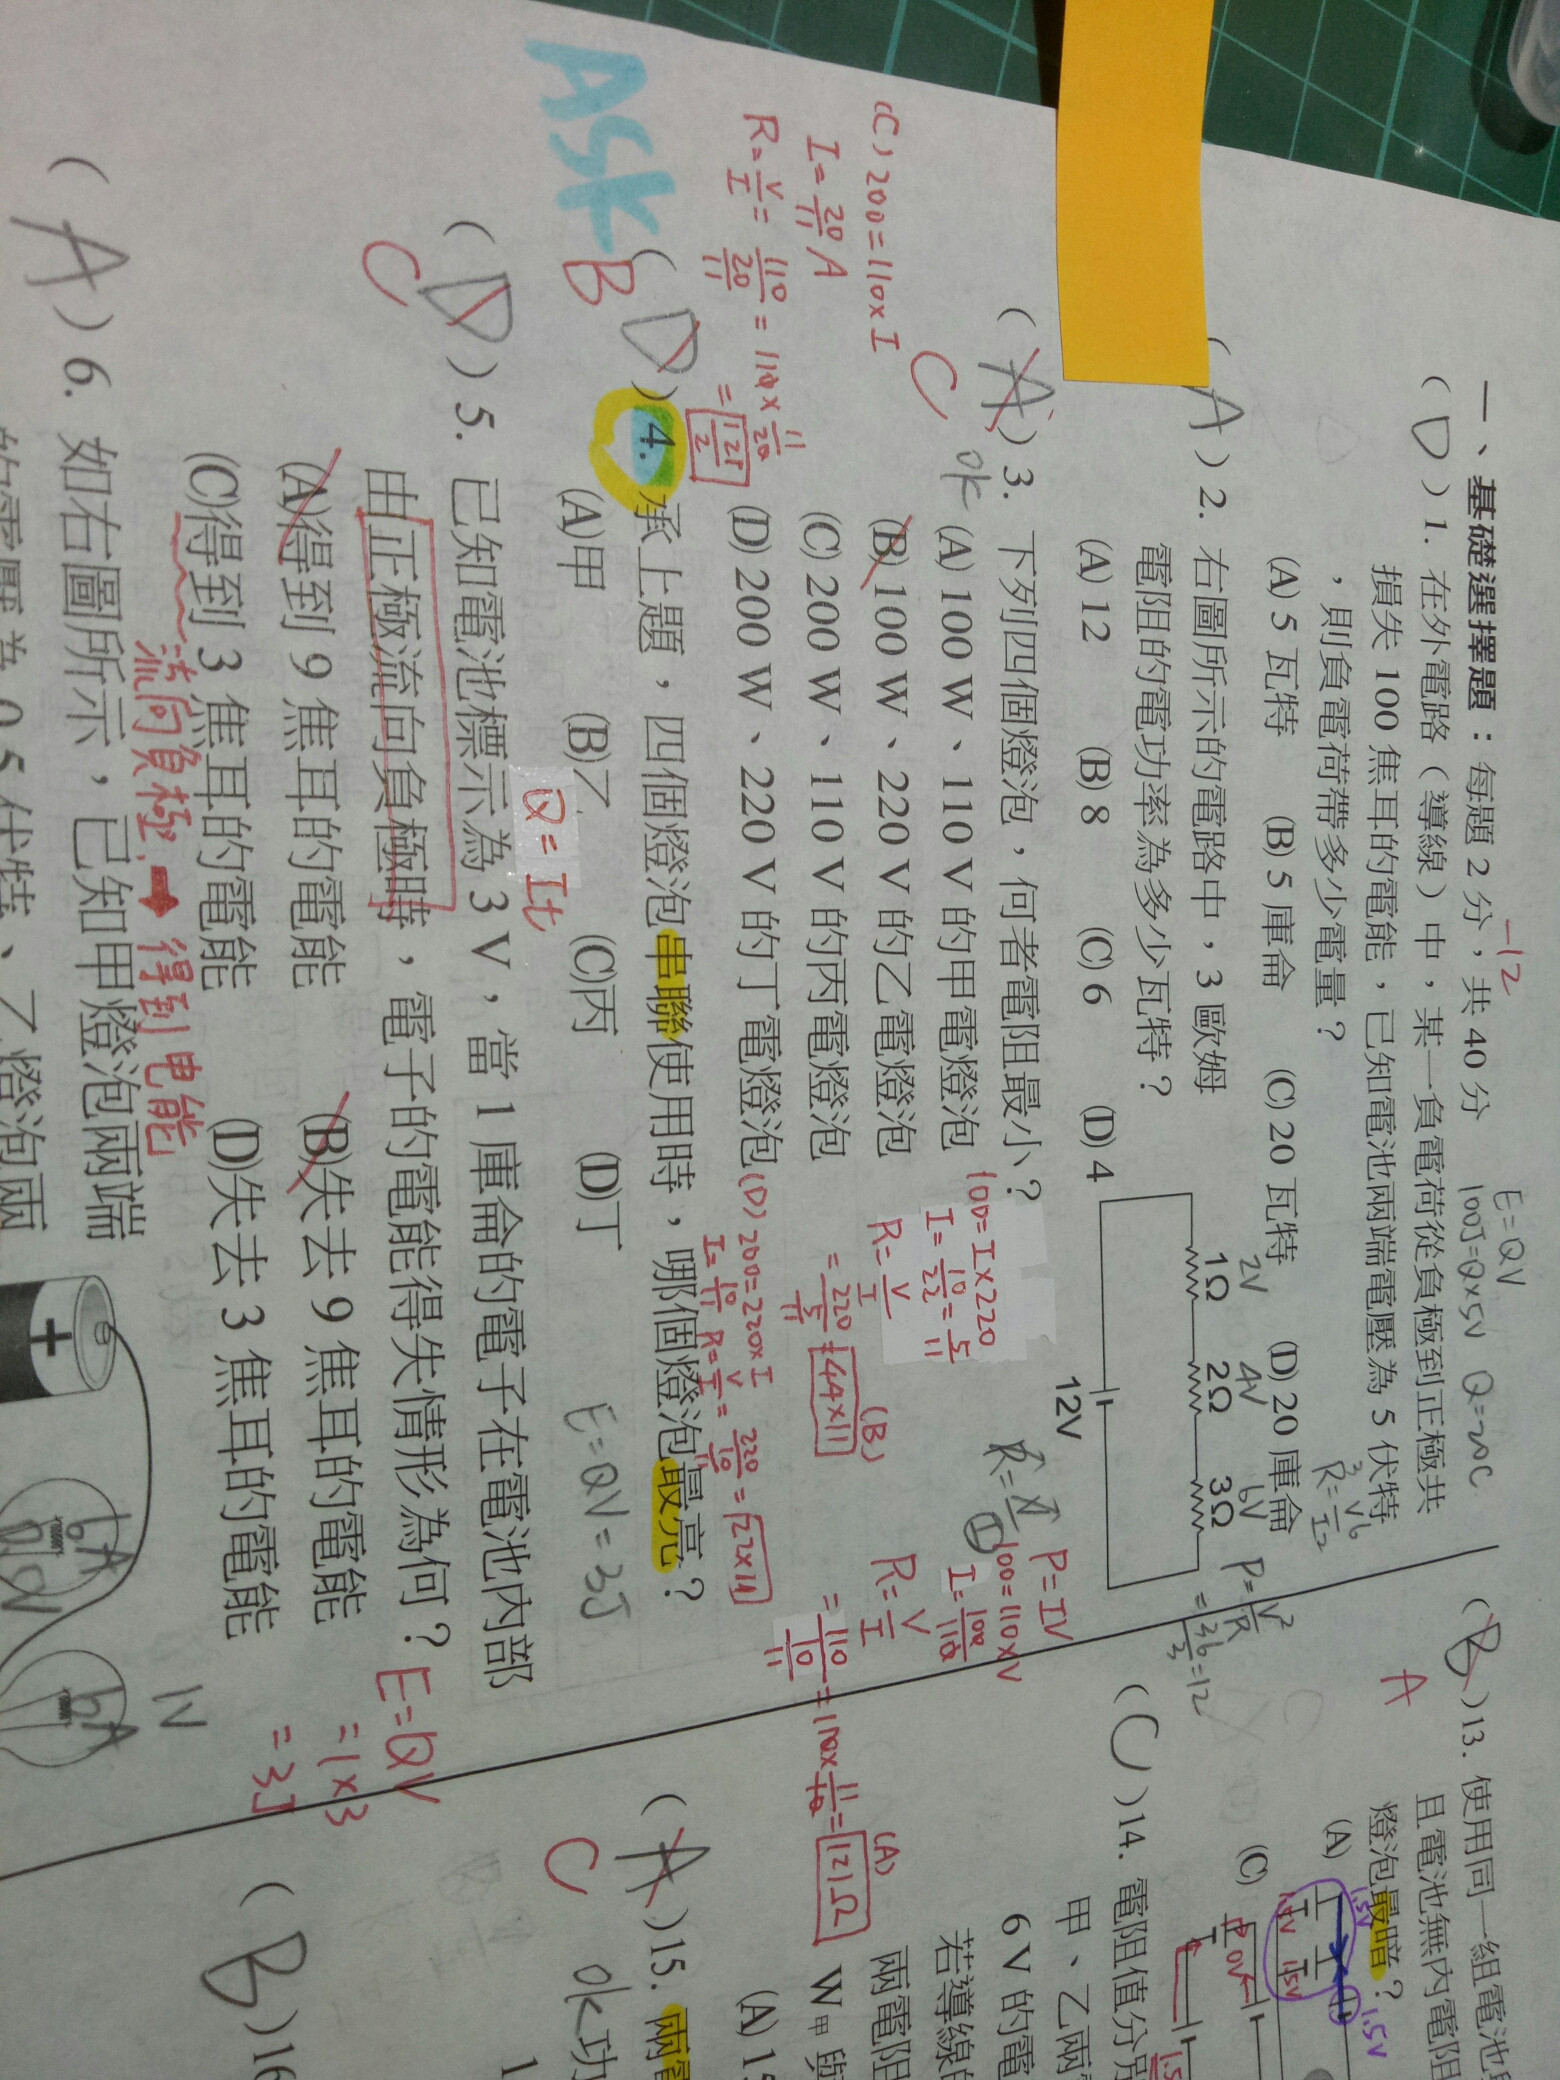 一、基礎選擇題：每題 2 分，共 40 分
-12
E=QV
100J=Q×5V Q=20C
( D ) 1. 在外電路（導線）中，某一負電荷從負極到正極共
損失 100 焦耳的電能，已知電池兩端電壓為 5 伏特
，則負電荷帶多少電量？
(A) 5 瓦特 (B) 5 庫侖 (C) 20 瓦特 (D) 20 庫侖
( A ) 2. 右圖所示的電路中，3 歐姆
電阻的電功率為多少瓦特？
(A) 12 (B) 8 (C) 6 (D) 4
2V 4V 6V
1Ω 2Ω 3Ω
12V
P=V²/R
=36/3=12
( A ) 3. 下列四個燈泡，何者電阻最小？
C
ok
(A) 100 W、110 V 的甲電燈泡
(B) 100 W、220 V 的乙電燈泡
(C) 200 W、110 V 的丙電燈泡
(D) 200 W、220 V 的丁電燈泡
(C) 200=110×I
I=20/11 A
R=V/I=110/(20/11)=110×11/20
=121/2
100=I×220
I=10/22=5/11
R=V/I
=220/(5/11)=44×11
(B)
(D) 200=220×I
I=10/11 R=V/I=220/(10/11)=22×11
P=IV
100=110×V
I=100/110
R=V/I
=110/(10/11)=110×11/10=121Ω
(A)
ASK
( D ) 4. 承上題，四個燈泡串聯使用時，哪個燈泡最亮？
B
(A)甲 (B)乙 (C)丙 (D)丁
Q=It
E=QV=3J
( D ) 5. 已知電池標示為 3 V，當 1 庫侖的電子在電池內部
C
由正極流向負極時，電子的電能得失情形為何？
(A)得到 9 焦耳的電能 (B)失去 9 焦耳的電能
(C)得到 3 焦耳的電能 (D)失去 3 焦耳的電能
流向負極➡得到电能
E=QV
=1×3
=3J
( A ) 6. 如右圖所示，已知甲燈泡兩端
的電壓為 0.5 伏特、乙燈泡兩
+
6A
6A
1V
( B ) 13. 使用同一組電池
A
且電池無內電阻
燈泡最暗？
(A)
(C)
1.5V
1.5V
1.5V
1.5V
0V
( C ) 14. 電阻值分別
甲、乙兩
6V 的電
若導線的
兩電阻
W甲與
(A) 1
( A ) 15. 兩電
C
ok
功
1
( B ) 16